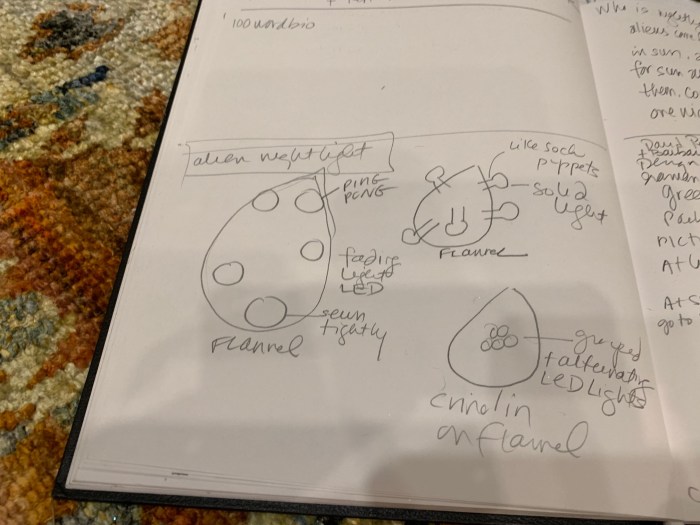 100 word bio
alien nightlight
PING
PONG
fading
lights
LED
sewn
tightly
FLANNEL
like sock
puppets
solid
light
FLANNEL
grouped
+ alternating
LED Lights
Crinolin
on flannel
Who is
aliens come
in sun,
for sun
them. Co
are
Design
gree
pict
At
At S
go to